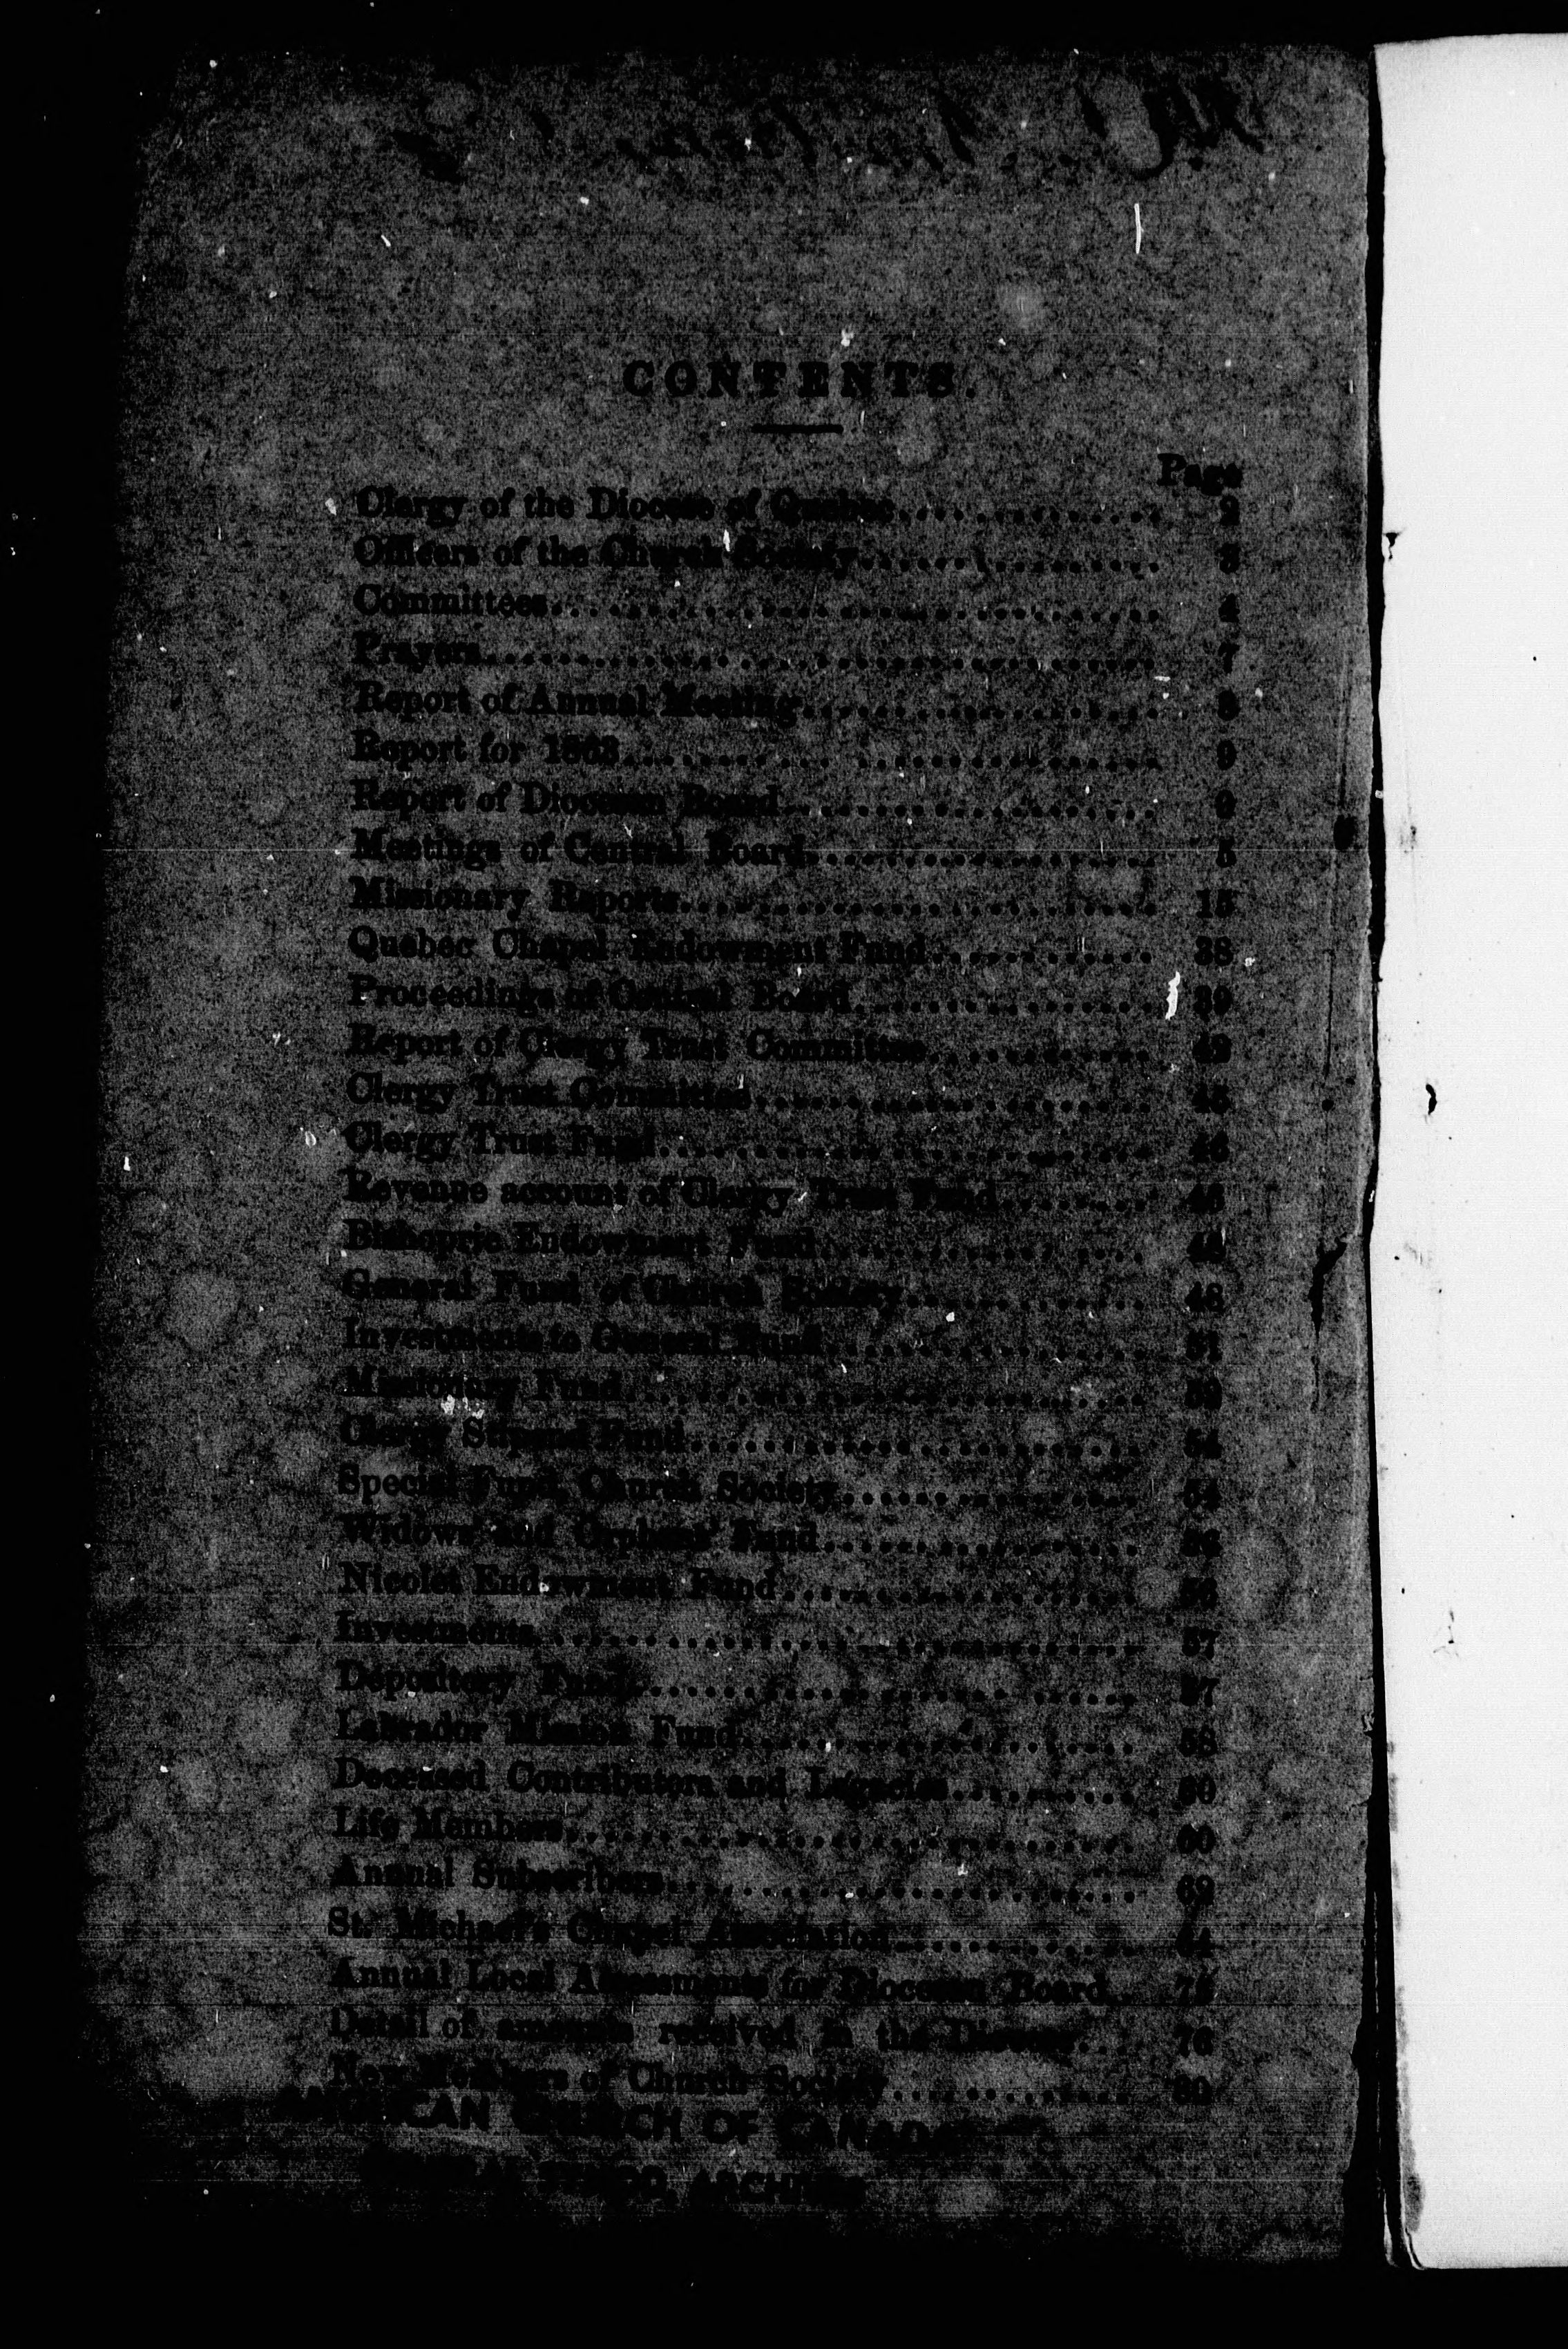 CONTENTS.
Page
Clergy of the Diocese of Quebec................ 2
Officers of the Church Society................ 3
Committees................ 4
Prayers................ 7
Report of Annual Meeting................ 8
Report for 1863................ 9
Report of Diocesan Board................ 9
Meetings of Central Board................ 5
Missionary Reports................ 15
Quebec Chapel Endowment Fund................ 38
Proceedings of Central Board................ 39
Report of Clergy Trust Committee................ 42
Clergy Trust Committee................ 45
Clergy Trust Fund................
Revenue account of Clergy Trust Fund................
Bishopric Endowment Fund................
General Fund of Church Society................ 48
Investments to General Fund................ 51
Missionary Fund................ 52
Clergy Stipend Fund................ 54
Special Fund, Church Society................ 54
Widows' and Orphans' Fund................
Nicolet Endowment Fund................ 56
Investments................ 57
Depository Fund................ 57
Labrador Mission Fund................ 58
Deceased Contributors and Legacies................ 60
Life Members................ 60
Annual Subscribers................ 62
St. Michael's Chapel Association................ 64
Annual Local Assessments for Diocesan Board.. 75
Detail of amounts received in the Diocese... 76
New Members of Church Society................ 80
ANGLICAN CHURCH OF CANADA
SYNOD ARCHIVES